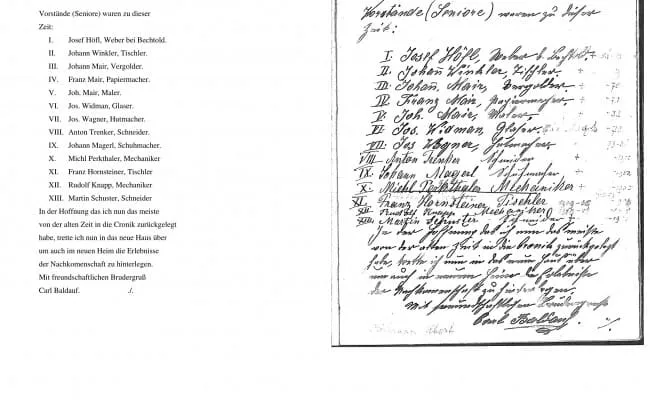 Vorstände (Seniore) waren zu dieser
Zeit:
I. Josef Höfl, Weber bei Bechtold.
II. Johann Winkler, Tischler.
III. Johann Mair, Vergolder.
IV. Franz Mair, Papiermacher.
V. Joh. Mair, Maler.
VI. Jos. Widman, Glaser.
VII. Jos. Wagner, Hutmacher.
VIII. Anton Trenker, Schneider.
IX. Johann Magerl, Schuhmacher.
X. Michl Perkthaler, Mechaniker
XI. Franz Hornsteiner, Tischler
XII. Rudolf Knapp, Mechaniker
XIII. Martin Schuster, Schneider
In der Hoffnung das ich nun das meiste
von der alten Zeit in die Cronik zurückgelegt
habe, trette ich nun in das neue Haus über
um auch im neuen Heim die Erlebnisse
der Nachkomenschaft zu hinterlegen.
Mit freundschaftlichen Brudergruß
Carl Baldauf. ./.
Vorstände (Seniore) waren zu dieser
Zeit:
I. Josef Höfl, Weber b. Bechtold.
II. Johann Winkler, Tischler.
III. Johann. Mair, Vergolder.
IV. Franz Mair, Papiermacher.
V. Joh. Mair, Maler.
VI. Jos. Widman, Glaser.
VII. Jos Wagner, Hutmacher
VIII. Anton Trenker Schneider
IX. Johann Magerl Schuhmacher
X. Michl Perkthaler Mechaniker
XI. Franz Hornsteiner, Tischler
XII. Rudolf Knapp, Mechaniker
XIII. Martin Schuster Schneider
In der Hoffnung das ich nun das meiste
von der alten Zeit in die Cronik zurückgelegt
habe, trette ich nun in das neue Haus über
um auch in neuen Heim die Erlebnisse
der Nachkomenschaft zu hinterlegen.
Mit freundschaftlichen Brudergruß
Carl Baldauf. ./.